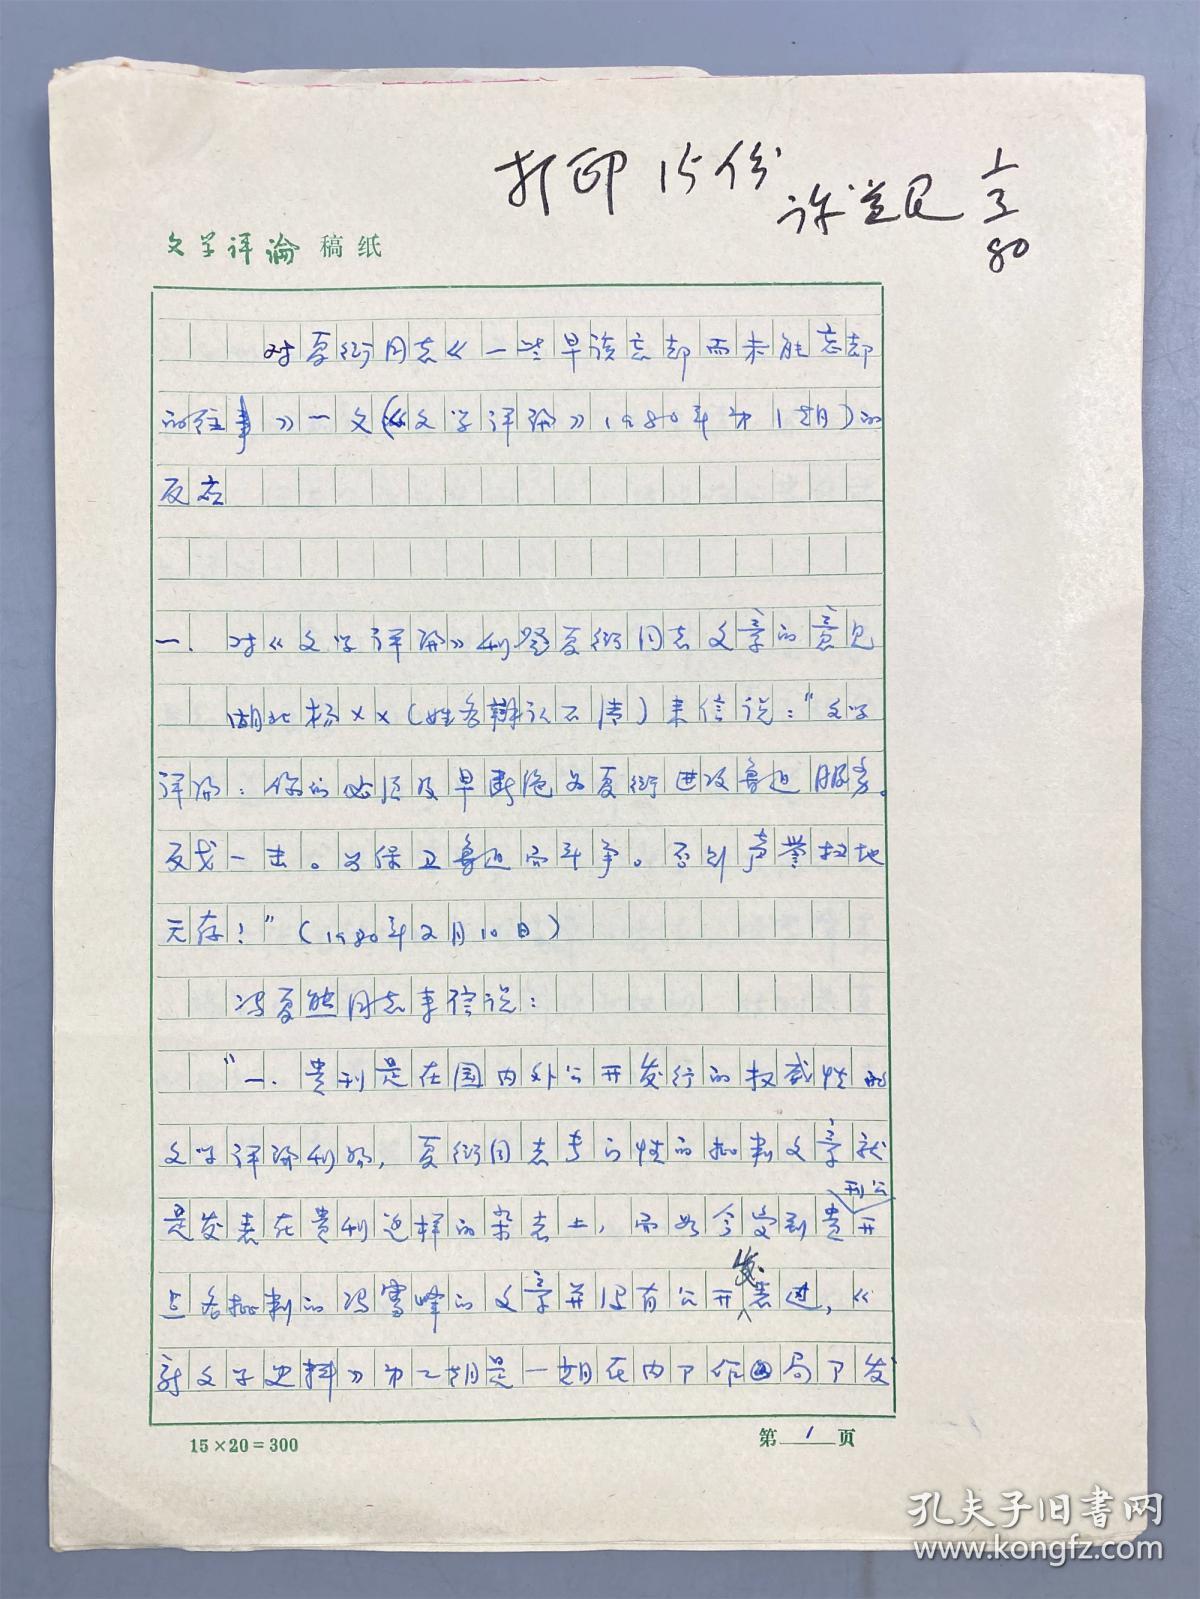 打印15份
许觉民 1/3 80
文学评论 稿纸
对夏衍同志《一些早该忘却而未能忘却
的往事》一文(《文学评论》1980年第1期)的
反应
一.对《文学评论》刊登夏衍同志文章的意见
湖北杨××(姓名辨认不清)来信说:“文学
评论:你们必须及早断绝为夏衍进攻鲁迅服务。
反戈一击。为保卫鲁迅而斗争。否则声誉扫地
无存!”(1980年2月10日)
冯夏熊同志来信说:
“一.贵刊是在国内外公开发行的权威性的
文学评论刊物,夏衍同志专门性的批判文章就
是发表在贵刊这样的杂志上,而如今受到贵刊公开
点名批判的冯雪峰的文章并没有公开发表过,《
新文学史料》第二期是一期在内部作局部发
15×20=300
第1页
孔夫子旧书网
www.kongfz.com